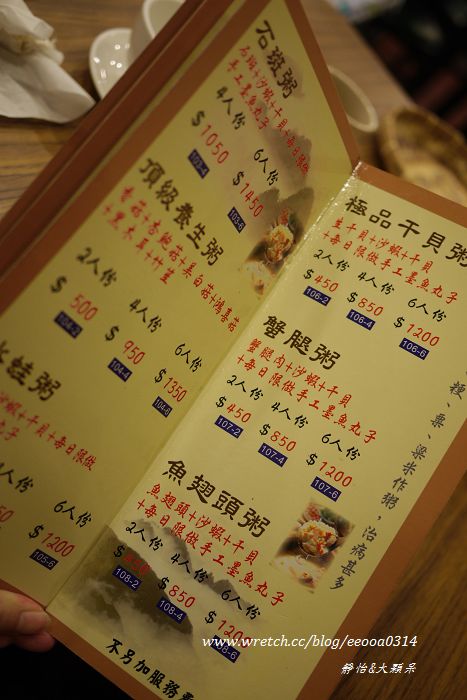 石斑粥
石斑+沙蝦+干貝+每日限做
手工墨魚丸子
4人份 6人份
$1050 $1450
103-4 103-6
頂級養生粥
香菇+杏鮑菇+美白菇+鴻喜菇
+黑木耳+竹笙
2人份 4人份 6人份
$500 $950 $1350
104-2 104-4 104-6
蛙粥
+沙蝦+干貝+每日限做
丸子
人份 6人份
50 $1200
105-6
極品干貝粥
生干貝+沙蝦+干貝
+每日限做手工墨魚丸子
2人份 4人份 6人份
$450 $850 $1200
106-2 106-4 106-6
蟹腿粥
蟹腿肉+沙蝦+干貝
+每日限做手工墨魚丸子
2人份 4人份 6人份
$450 $850 $1200
107-2 107-4 107-6
魚翅頭粥
魚翅頭+沙蝦+干貝
+每日限做手工墨魚丸子
2人份 4人份 6人份
$450 $850 $120
108-2 108-4 8-6
粳、粟、梁米作粥,治病甚多
不另加服務費
www.wretch.cc/blog/eeooa0314
靜怡&大顆呆